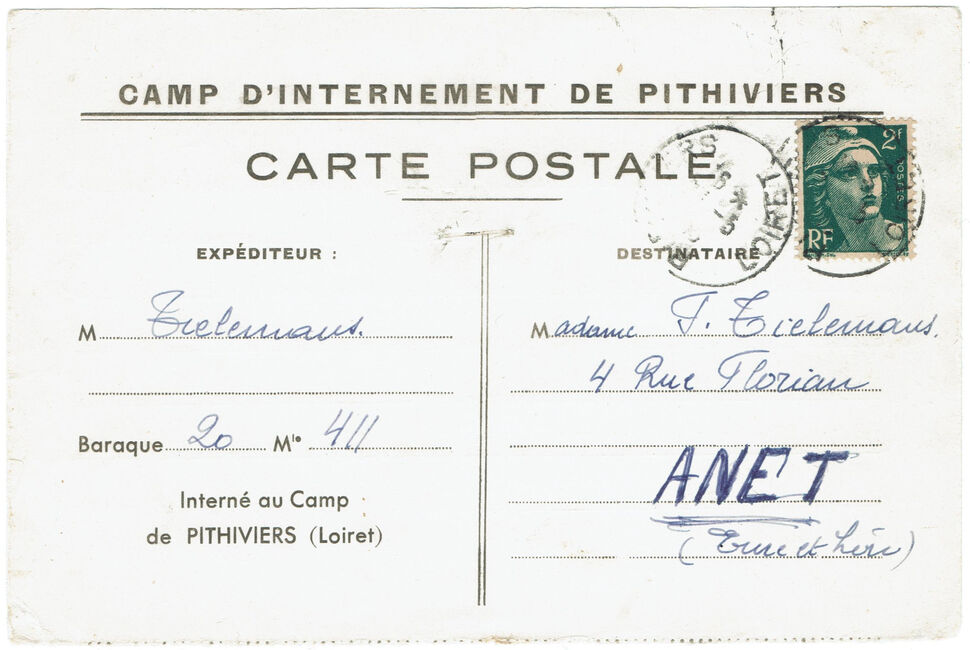 CAMP D'INTERNEMENT DE PITHIVIERS
CARTE POSTALE
EXPÉDITEUR :
M Tielemans.
Baraque 20 Mle 411
Interné au Camp
de PITHIVIERS (Loiret)
DESTINATAIRE
Madame F. Tielemans.
4 Rue Florian
ANET
(Eure et Loir)
2F
POSTES
RF
LOIRET